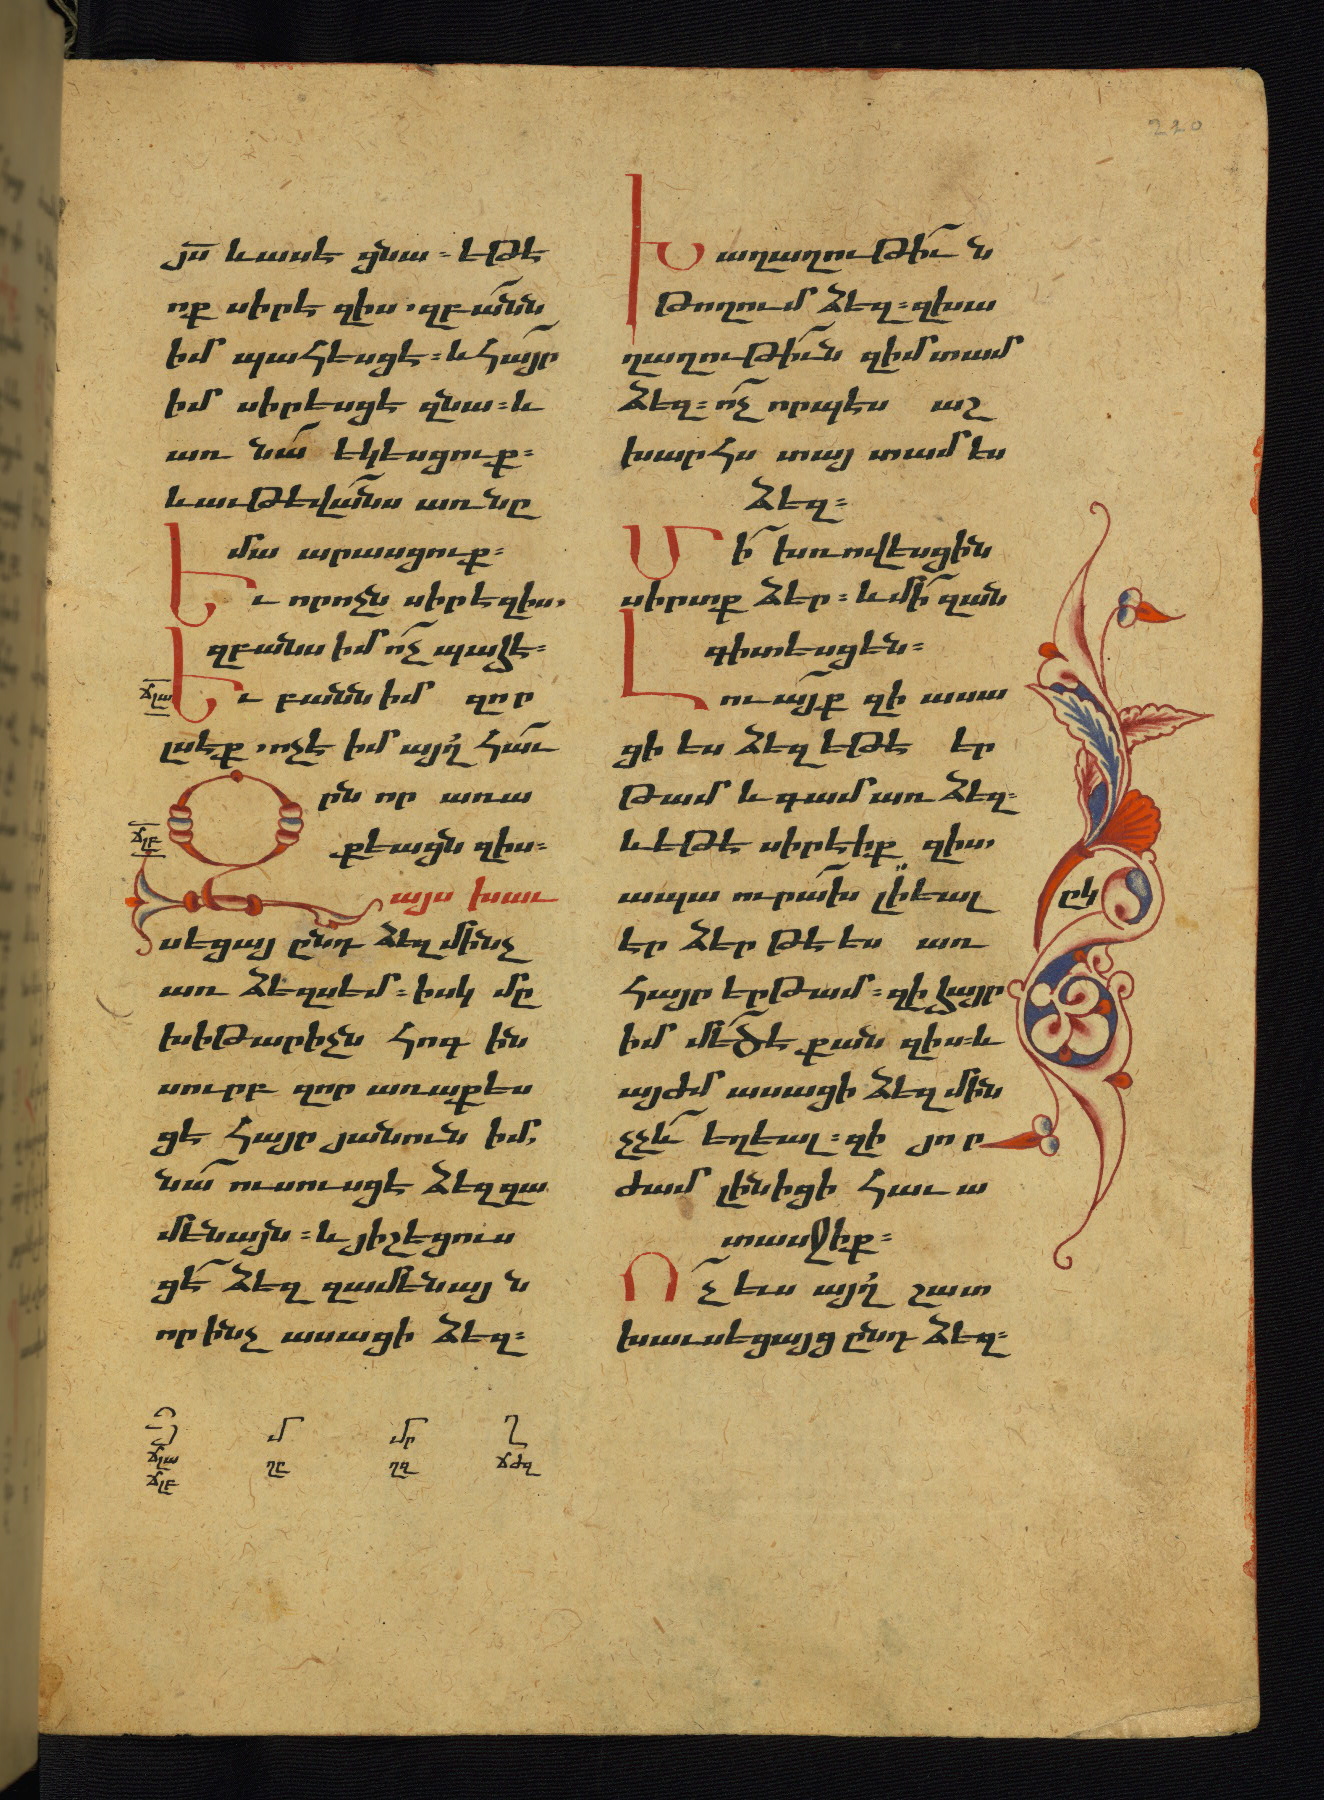 220
յս եւ ասէ ցնա ։ եթէ
ոք սիրէ զիս , զբանն
իմ պահեսցէ ։ և հայր
իմ սիրեսցէ զնա ։ և
առ նա եկեսցուք ։
և աւթեվանս առ նը
մա արասցուք ։
Եւ որ ոչն սիրէ զիս ,
զբանս իմ ոչ պահէ ։
ճլա
Եւ բանն իմ զոր
լսէք , ոչէ իմ այղ հաւ
Օրն որ առա
ճլբ
քեացն զիս ։
այս խաւ
սեցայ ընդ ձեզ մինչ
առ ձեզս եմ ։ իսկ մը
խիթարիչն հոգ ին
սուրբ զոր առաքես
ցէ հայր յանուն իմ ,
նա ուսուսցէ ձեզ զա
մենայն ։ և յիշեցուս
ցէ ձեզ զամենայ ն
որ ինչ ասացի ձեզ ։
Խաղաղութիւ ն
թողում ձեզ ։ զխա
ղաղութիւն զիմ տամ
ձեզ ։ ոչ որպես աշ
խարհս տայ տամ ես
ձեզ ։
Մի խռովեսցին
սիրտք ձեր ։ և մի զան
գիտեսցեն ։
Լուայք զի ասա
ցի ես ձեզ եթէ եր
թամ և գամ առ ձեզ ։
և եթէ սիրէիք զիս ,
ապա ուրախ լիեալ
ըկ
էր ձեր թէ ես առ
հայր երթամ ։ զի հայր
իմ մեծ է քան զիս ։ և
այժմ ասացի ձեզ մին
չչև եղեալ ։ զի յոր
ժամ լինիցի հաւ ա
տասջիք ։
Ոչ ևս այղ շատ
խաւսեցայց ընդ ձեզ ։
մ մր ղ
ճլա ղը ղզ ճժզ
ճլբ